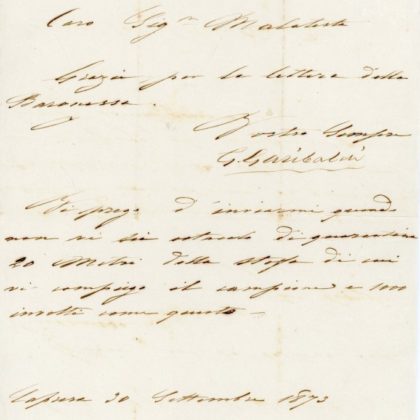 Caro Sigr Malatesta
Grazie per la lettera della
Baronessa.
Vostro Sempre
G. Garibaldi
Vi prego d'inviarmi quando
non vi sia ostacolo di quarantina
20 Metri della stoffa di cui
vi compiego il campione e 1000
involti come questo —
Caprera 30 Settembre 1873